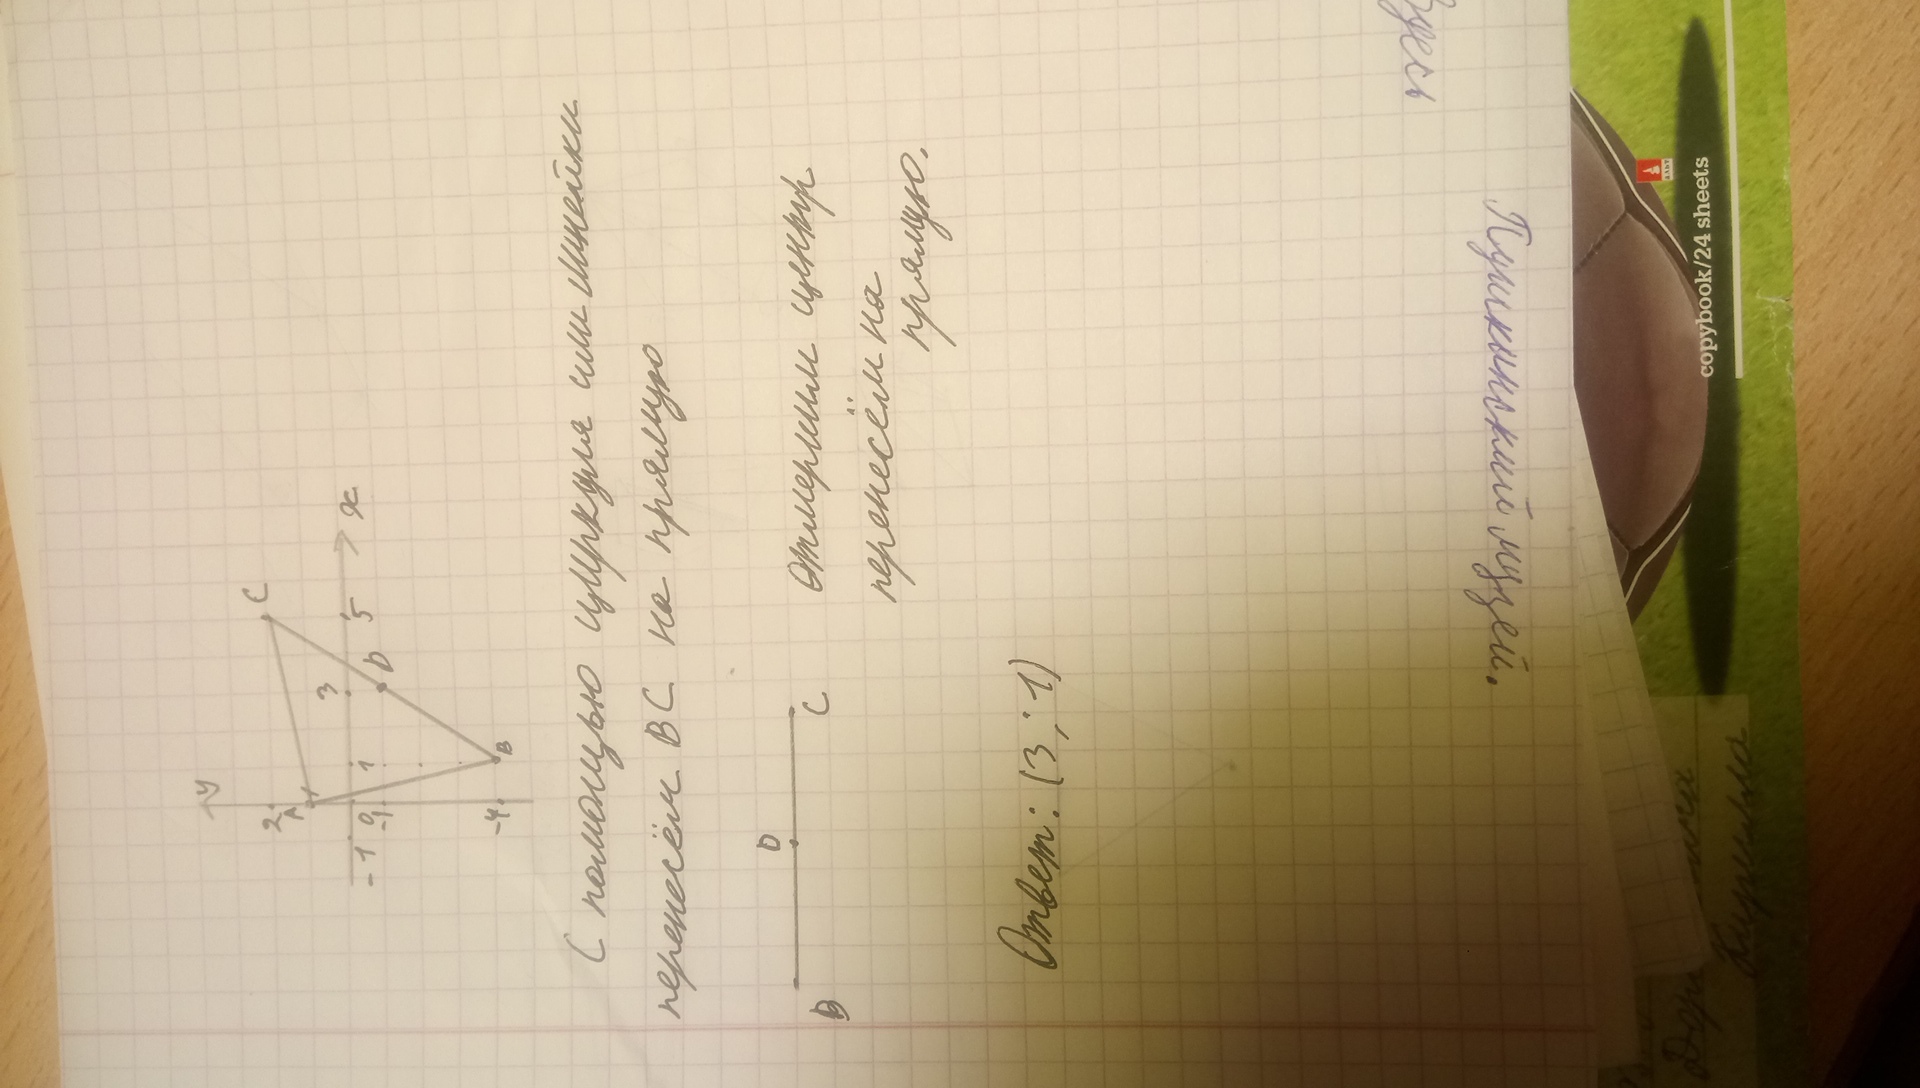 y
2
A
C
3
-1
0
1
5
x
-1
D
-4
B
С помощью циркуля или линейки
перенесём BC на прямую
D
B
C
Отмерим центр
перенесём на
прямую.
Ответ: (3; -1)
Здесь
Пушкинский музей.
copybook/24 sheets